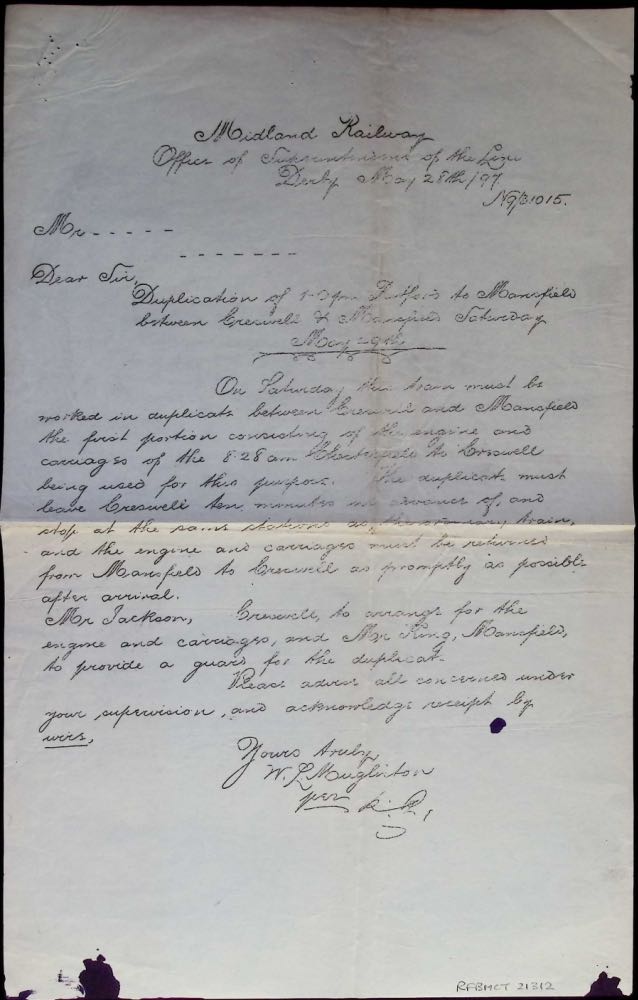 Midland Railway
Office of Superintendent of the Line
Derby May 28th/97
Mr - - - - -
- - - - - - -
Dear Sir,
Duplication of to Mansfield
between Creswell & Mansfield Saturday
May 29th
On Saturday this train must be
worked in duplicate between Creswell and Mansfield
the first portion consisting of the engine and
carriages of the 8-28 am to Creswell
being used for this purpose. The duplicate must
leave Creswell ten minutes in advance of, and
stop at the same stations as, the ordinary train,
and the engine and carriages must be returned
from Mansfield to Creswell as promptly as possible
after arrival.
Mr Jackson, Creswell, to arrange for the
engine and carriages, and Mr King, Mansfield,
to provide a guard for the duplicate
Please advise all concerned under
your supervision, and acknowledge receipt by
wire,
Yours truly,
W. L. Mugliston
per
RFBMCT 21312